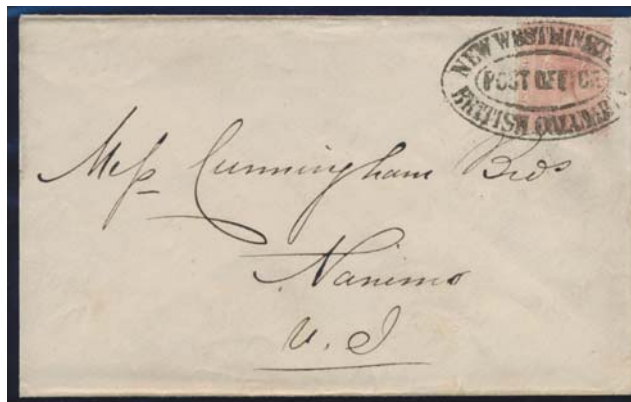 NEW WESTMINSTE
POST OFFICE
BRITISH COLUMBI
Mess Cunningham Bros
Nanimo
V. I